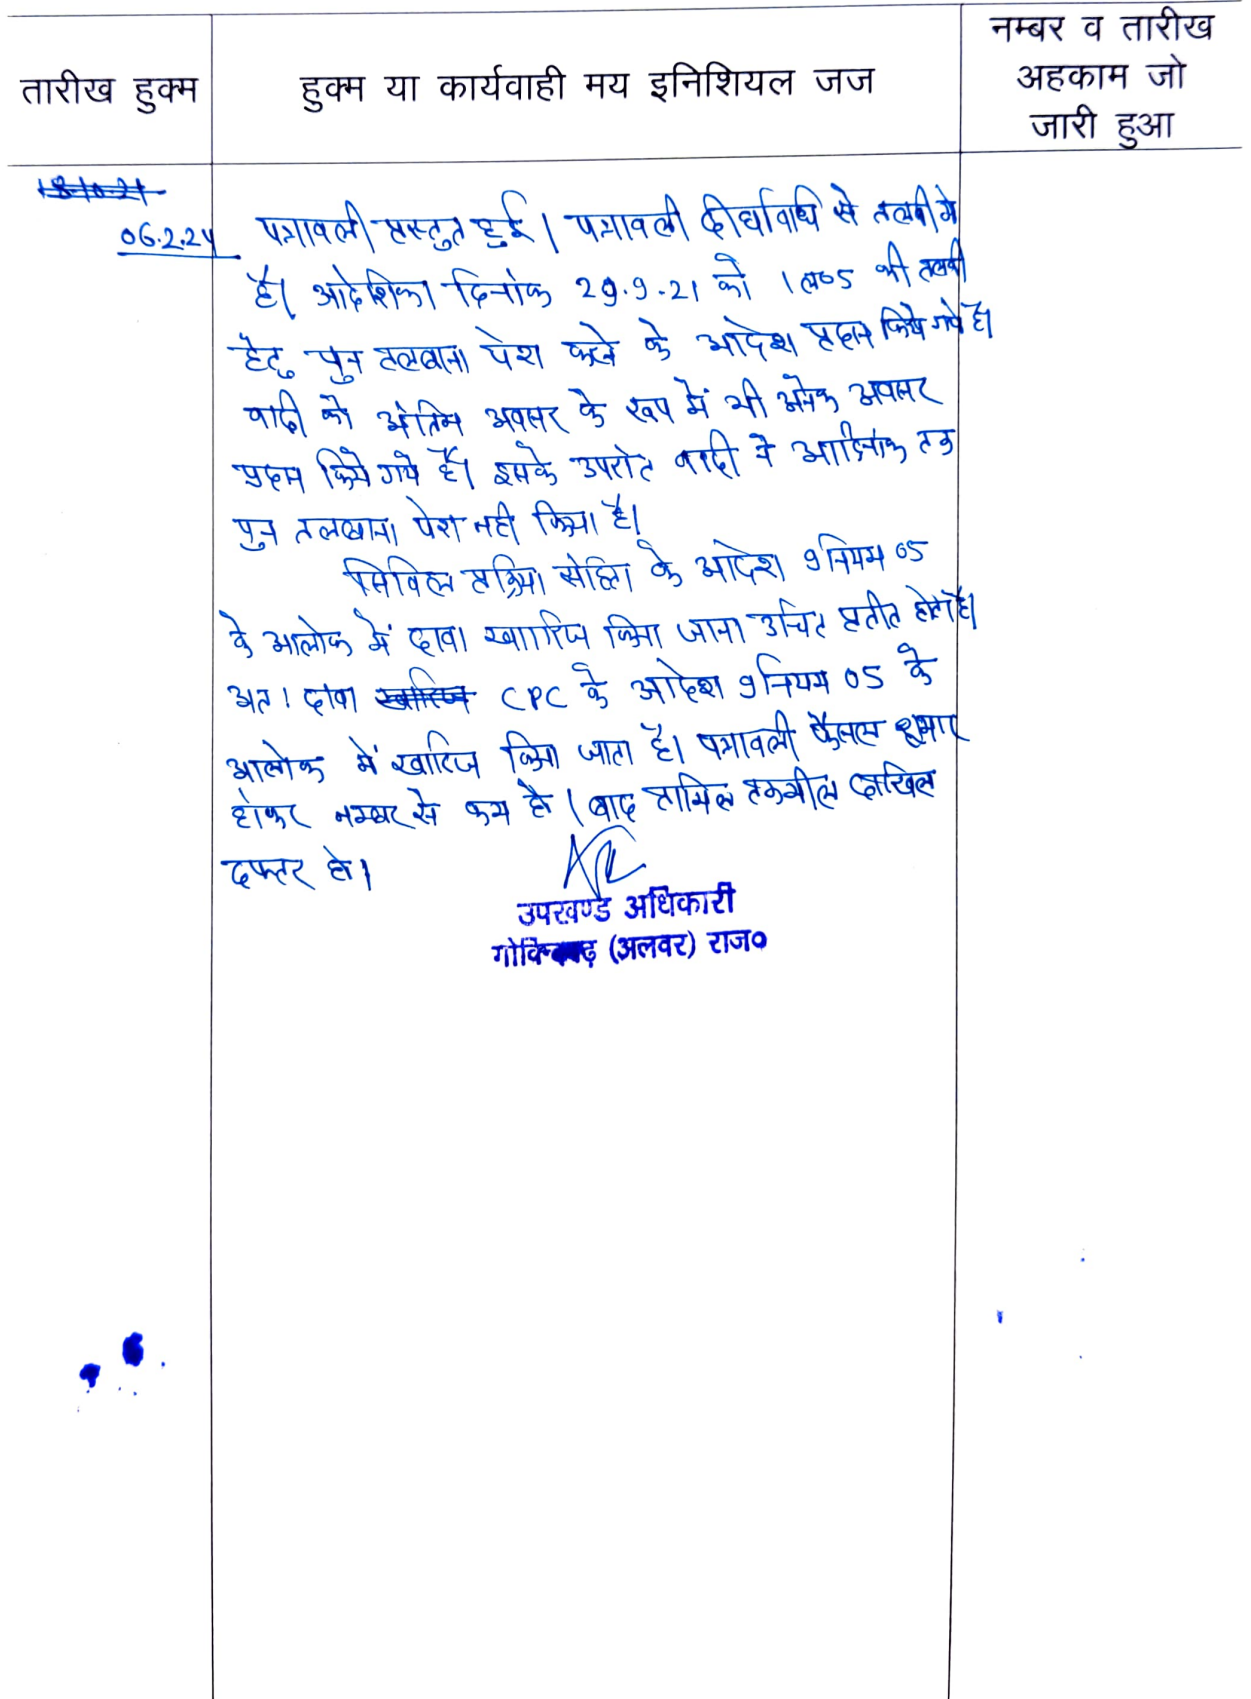 तारीख हुक्म
हुक्म या कार्यवाही मय इनिशियल जज
नम्बर व तारीख
अहकाम जो
जारी हुआ
18-10-21
06.2.24
पत्रावली प्रस्तुत हुई। पत्रावली दीर्घावधि से तलबी मे
है। आदेशिका दिनांक 29.9.21 को की तलबी
हेतु पुन तलबाना पेश करने के आदेश प्रदान किये गये है।
वादी को अंतिम अवसर के रूप में भी अनेक अवसर
प्रदान किये गये है। इसके उपरांत वादी ने आदिनांक तक
पुन तलबाना पेश नही किया है।
सिविल प्रक्रिया संहिता के आदेश 9 नियम 05
के आलोक में दावा खारिज किया जाना उचित प्रतीत होता है।
अत। दावा खारिज CPC के आदेश 9 नियम 05 के
आलोक में खारिज किया जाता है। पत्रावली फैसल शुमार
होकर नम्बर से कम हो। बाद तामिल तकमील दाखिल
दफ्तर हो।
उपखण्ड अधिकारी
(अलवर) राज०